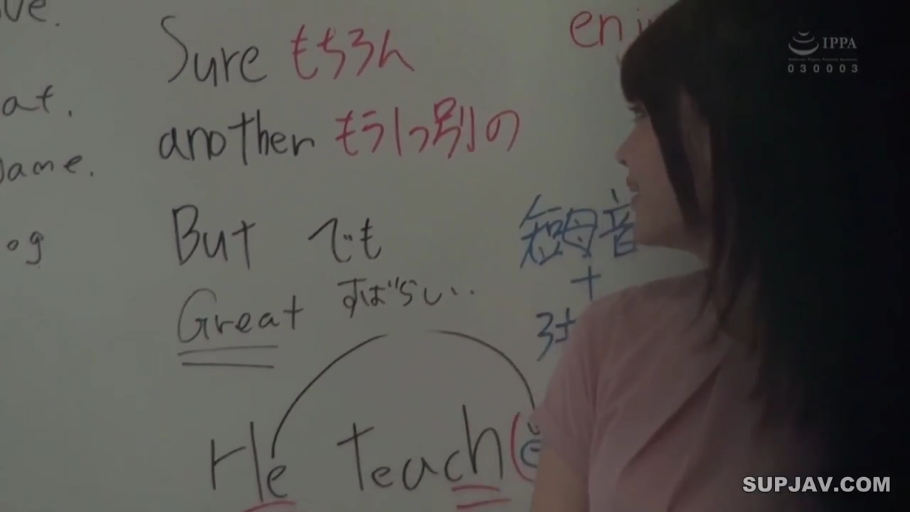 at.
Sure もちろん
another もう1つ別の
But でも
Great すばらしい..
短母音
+
He teach(e
IPPA
030003
SUPJAV.COM